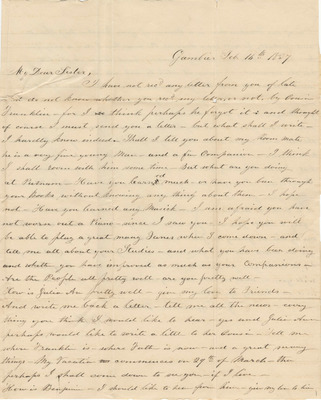 Gambier Feb 16th 1837
My Dear Sister,
I have not recd any letter from you of late
I do not know whether you recd my last or not, by Cousin
Franklin - for I think perhaps he forgot it & and thought
of course I must send you a letter - but what shall I write -
I hardly know indeed. Shall I tell you about my Room mate
he is a very fine young Man - and a fine Companion - I think
I shall room with him some time. But what are you doing
at Putnam - Have you learned much - or have you been through
your books without knowing any thing about them - I hope
not - Have you learned any Musick - I am afraid you have
not worn out a Piano since I saw you - I hope you will
be able to play a great many Tunes when I come down - and
tell me all about your Studies - and what you have been doing
and whether you have improved as much as your Companions -
Are the People all pretty well - are you pretty well -
How is Julia An pretty well - give my love to Friends -
And write me back a letter. Tell me all the news - every
thing you think I would like to hear - yes and Julia An -
perhaps would like to write a little to her Cousin. Tell me
where Franklin is - where Faith is now - and a great many
things My Vacation commences on 29th of March - then
perhaps I shall come down to see you, if I live -
How is Benjamin - I should like to hear from him - give my love to him